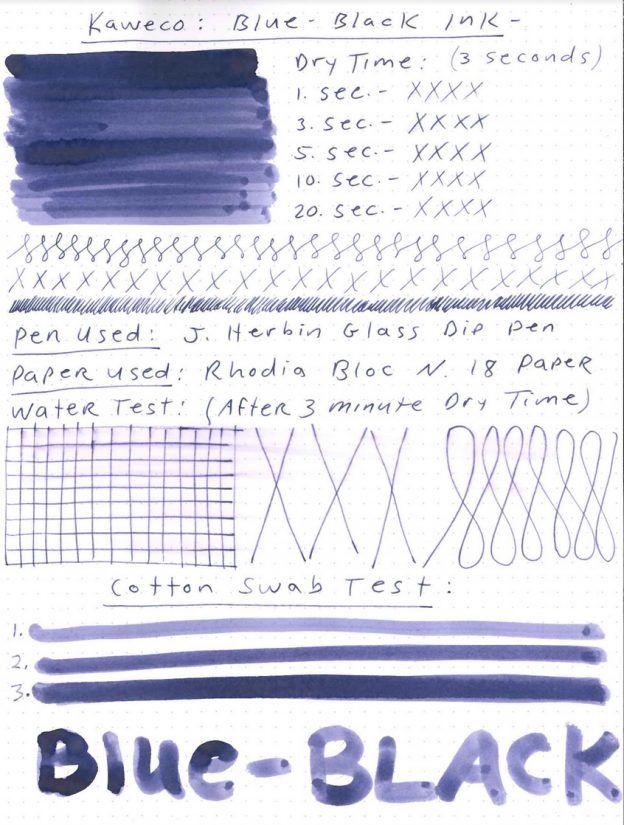 Kaweco: Blue-Black Ink-
Dry Time: (3 seconds)
1. sec.- XXXX
3. sec.- XXXX
5. sec.- XXXX
10. sec.- XXXX
20. sec.- XXXX
Pen Used: J. Herbin Glass Dip Pen
Paper Used: Rhodia Bloc N. 18 Paper
Water Test: (After 3 minute Dry Time)
Cotton Swab Test:
1.
2.
3.
Blue-BLACK